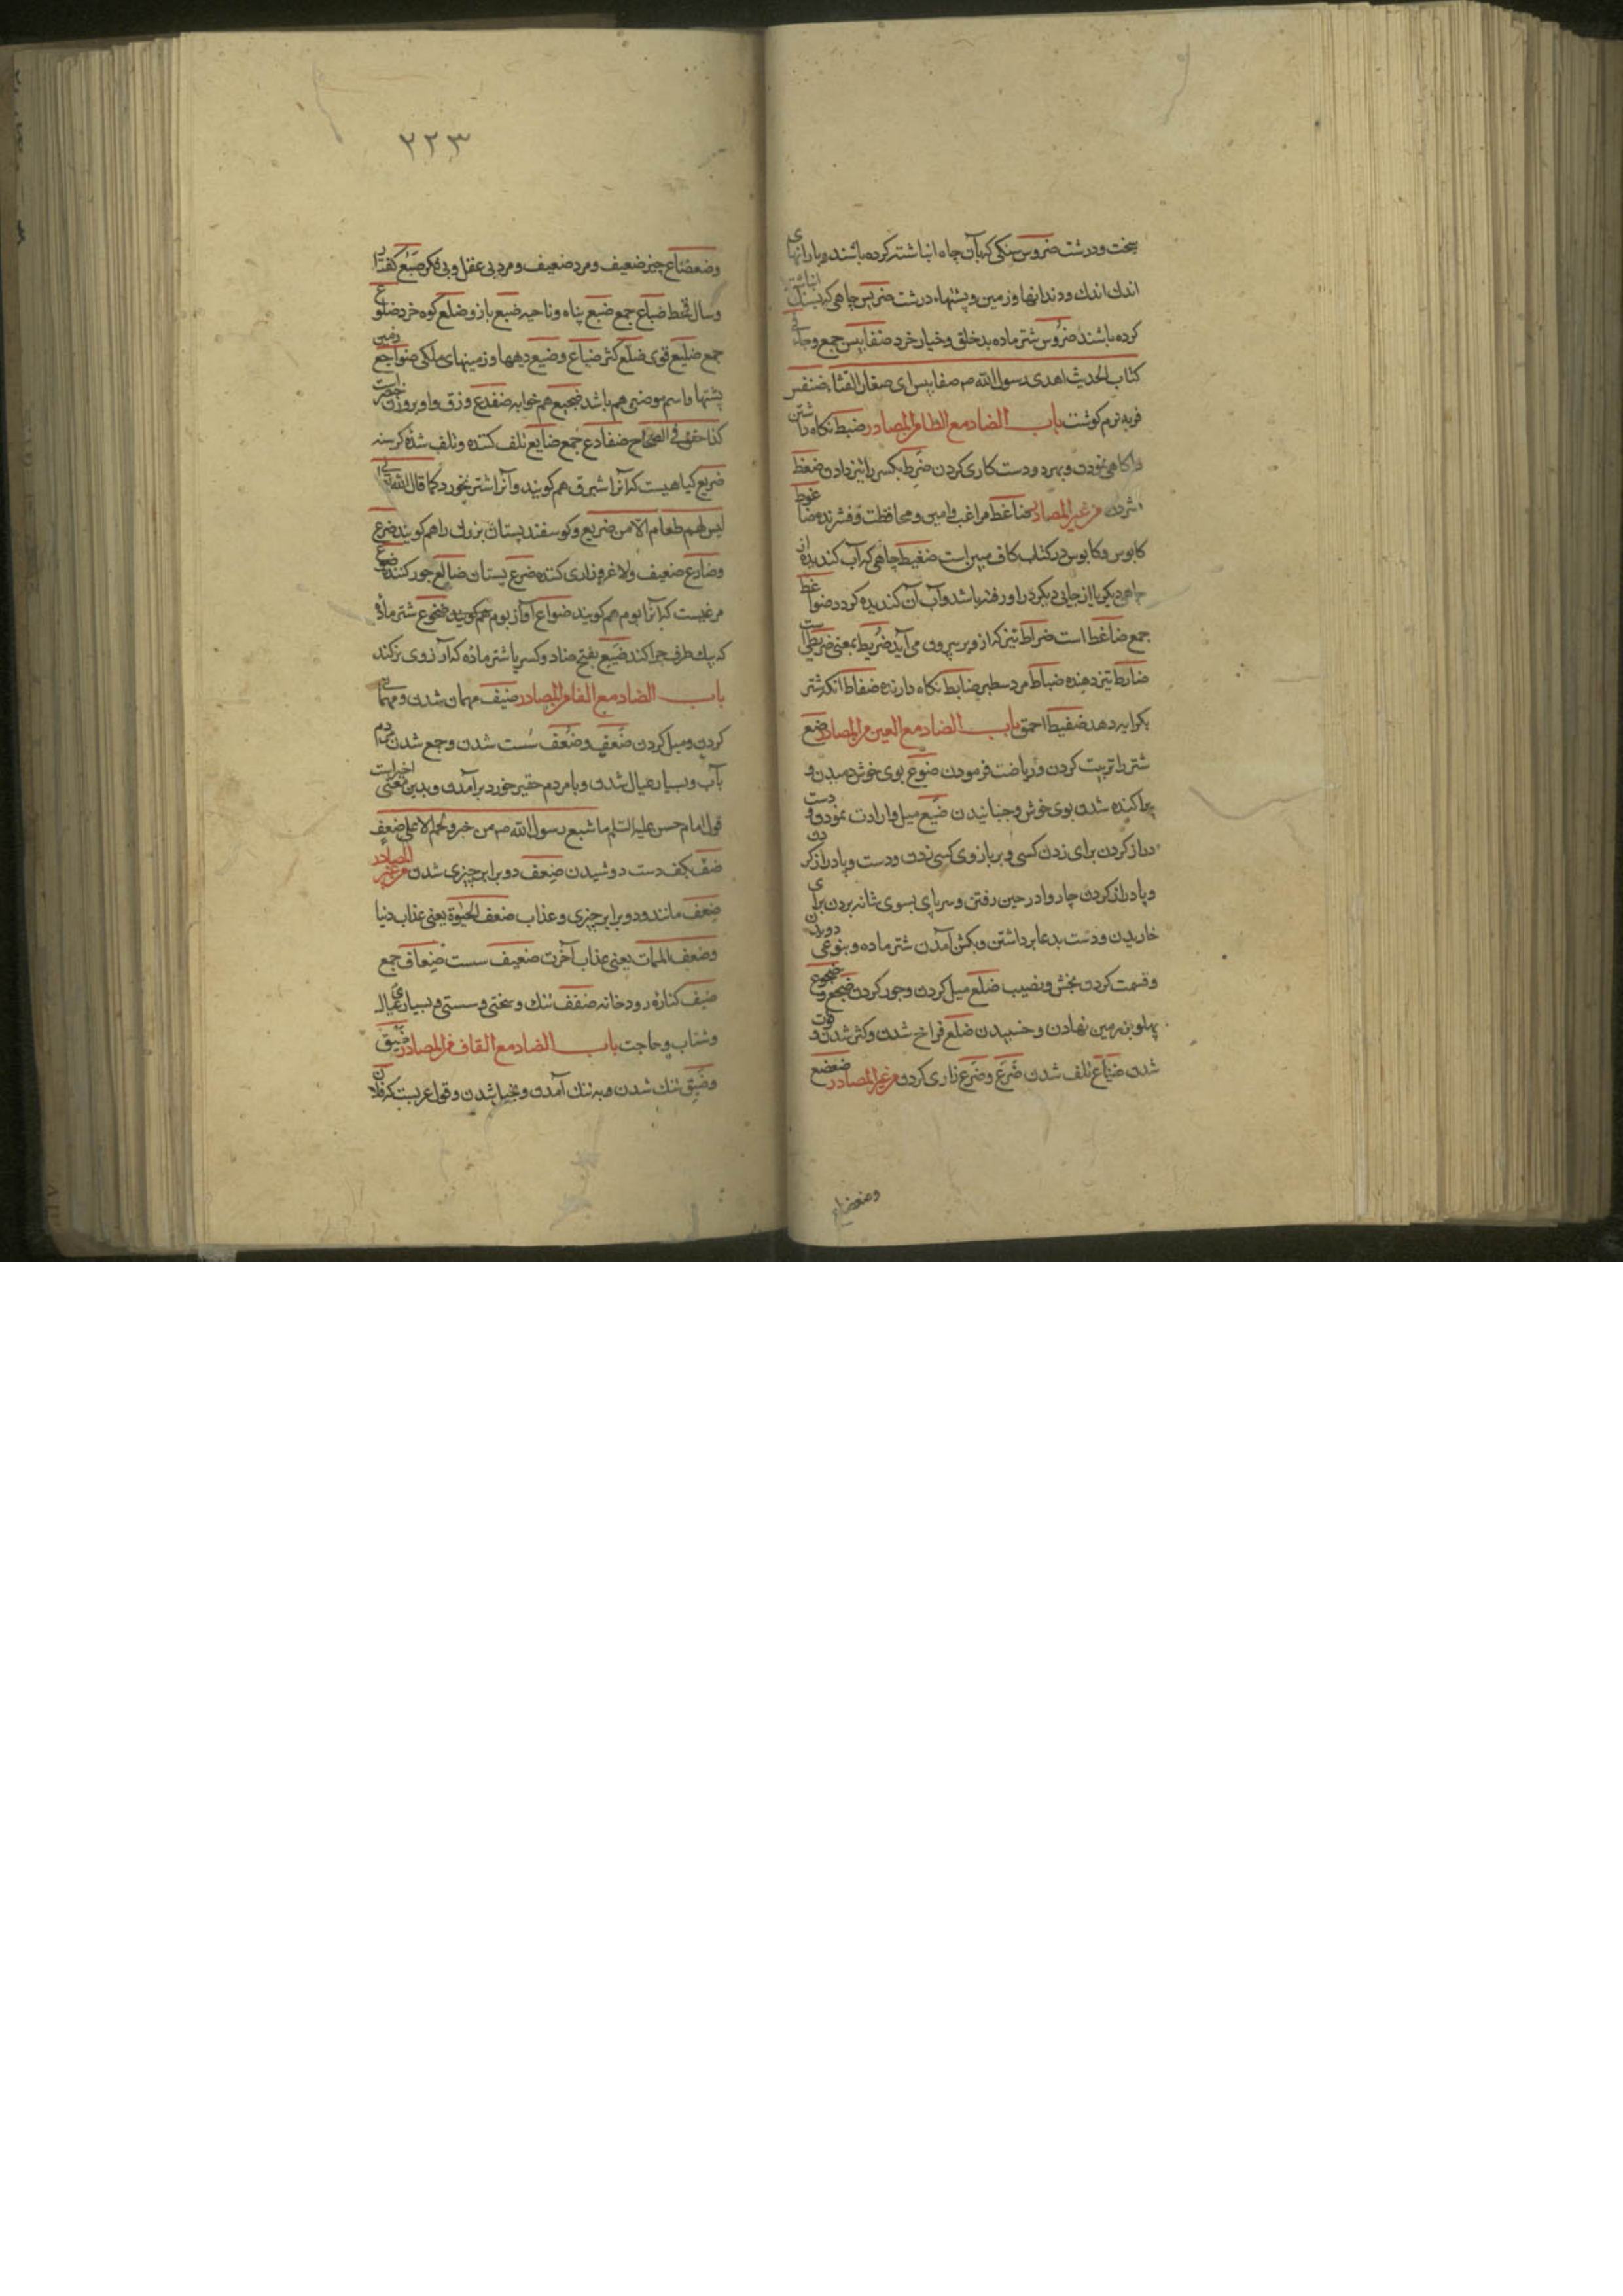 سخت و درشت ضروس سنکی که بآن چاه انباشته کرده باشند و بارانهای
اندك اندك و دندانها و زمین و پشتهاء درشت ضریس چاهی که بسنك انباشته
کرده باشند ضروس شتر ماده بدخلق و خیار خرد ضغابیس جمع وجاء فی
کتاب الحدیث اهدی رسول الله ص ضغابیس ای صغار القثاء ضنفس
فربه نرم کوشت باب الضاد مع الطا من المصادر ضبط نکاه داشتن
و اکاهی نمودن و بهر دو دست کاری کردن ضرط بکسر را تیز دادن ضغط
فشردن من غیر المصادر ضاغط مراغب و امین و محافظت و فشرنده ضاغوط
کابوس و کابوس در کتاب کاف مبین است ضغیط چاهی که آب کندیده از
چاهی دیکر یا از جایی دیکر در او رفته باشد و آب آن کندیده کردد ضواغط
جمع ضاغط است ضراط تیز که از دبر بیرون می آید ضریط بمعنی ضریطی است
ضارط تیز دهنده ضباط مرد سطبر ضابط نکاه دارنده ضفاط انکه شتر
بکرایه دهد ضفیط احمق باب الضاد مع العین من المصادر ضبع
شتر را تربیت کردن و ریاضت فرمودن ضوع بوی خوش دمیدن و
پراکنده شدن بوی خوش و جنبانیدن ضبع میل و ارادت نمودن و دست
دراز کردن برای زدن کسی و بر بازوی کسی زدن و دست و پا دراز کردن
و پا دراز کردن چاروا در حین رفتن و سر پای بسوی شانه بردن برای
خاریدن و دست بدعا برداشتن و بکشن آمدن شتر ماده و بنوعی دویدن
و قسمت کردن بخش و نصیب ضلع میل کردن و جور کردن ضجع و ضجوع
پهلو بزمین نهادن و خسپیدن ضلع فراخ شدن و کثر شدن و فوت
شدن ضیاع تلف شدن ضرع و ضرع زاری کردن من غیر المصادر ضعضع
وضعضاع
۲۲۳
وضعضاع چیز ضعیف و مرد ضعیف و مرد بی عقل و بی فکر ضبع کفتار
و سال قحط ضباع جمع ضبع پناه و ناحیه ضبع بازو ضلع کوه خرد ضلوع
جمع ضلیع قوی ضلع کثر ضیاع و ضیع دیهها و زمینهای ملکی ضواجع زمین
پشتها و اسم موضعی هم باشد ضجیع هم خوابه ضفدع وزق و او بر وزن خضر است
کذا حقق فی الصحاح ضفادع جمع ضایع تلف کننده و تلف شده کرسنه
ضریع کیاهیست که آنرا شبرق هم کویند و آنرا شتر نخورد کما قال الله تعالی
لیس لهم طعام الا من ضریع و کوسفند پستان بزرك را هم کویند ضرع
و ضارع ضعیف و لاغر و زاری کننده ضرع پستان ضالع جور کننده ضوع
مرغیست که آنرا بوم هم کویند ضواع آواز بوم هم کویند ضجوع شتر ماده
که بیك طرف چرا کند ضبع بفتح ضاد و کسر با شتر ماده که آرزوی نر کند
باب الضاد مع الفا من المصادر ضیف مهمان شدن و مهمانی
کردن و میل کردن ضعف و ضعف سست شدن و جمع شدن مردم
بآب و بسیار عیال شدن و با مردم حقیر خورد برآمدن و بدین معنی اخیر است
قول امام حسن علیه السلم ما شبع رسول الله ص من خبز ولحم الا علی ضفف
ضف بکف دست دوشیدن ضعف دو برابر چیزی شدن من غیر المصادر
ضعف مانند و دو برابر چیزی و عذاب ضعف الحیوة یعنی عذاب دنیا
وضعف الممات یعنی عذاب آخرت ضعیف سست ضعاف جمع
ضیف کناره رودخانه ضفف تنك و سختی و سستی و بسیاری عیال
و شتاب و حاجت باب الضاد مع القاف من المصادر ضیق
و ضیق تنك شدن و به تنك آمدن و بخیل شدن و قول عربیست که فلان